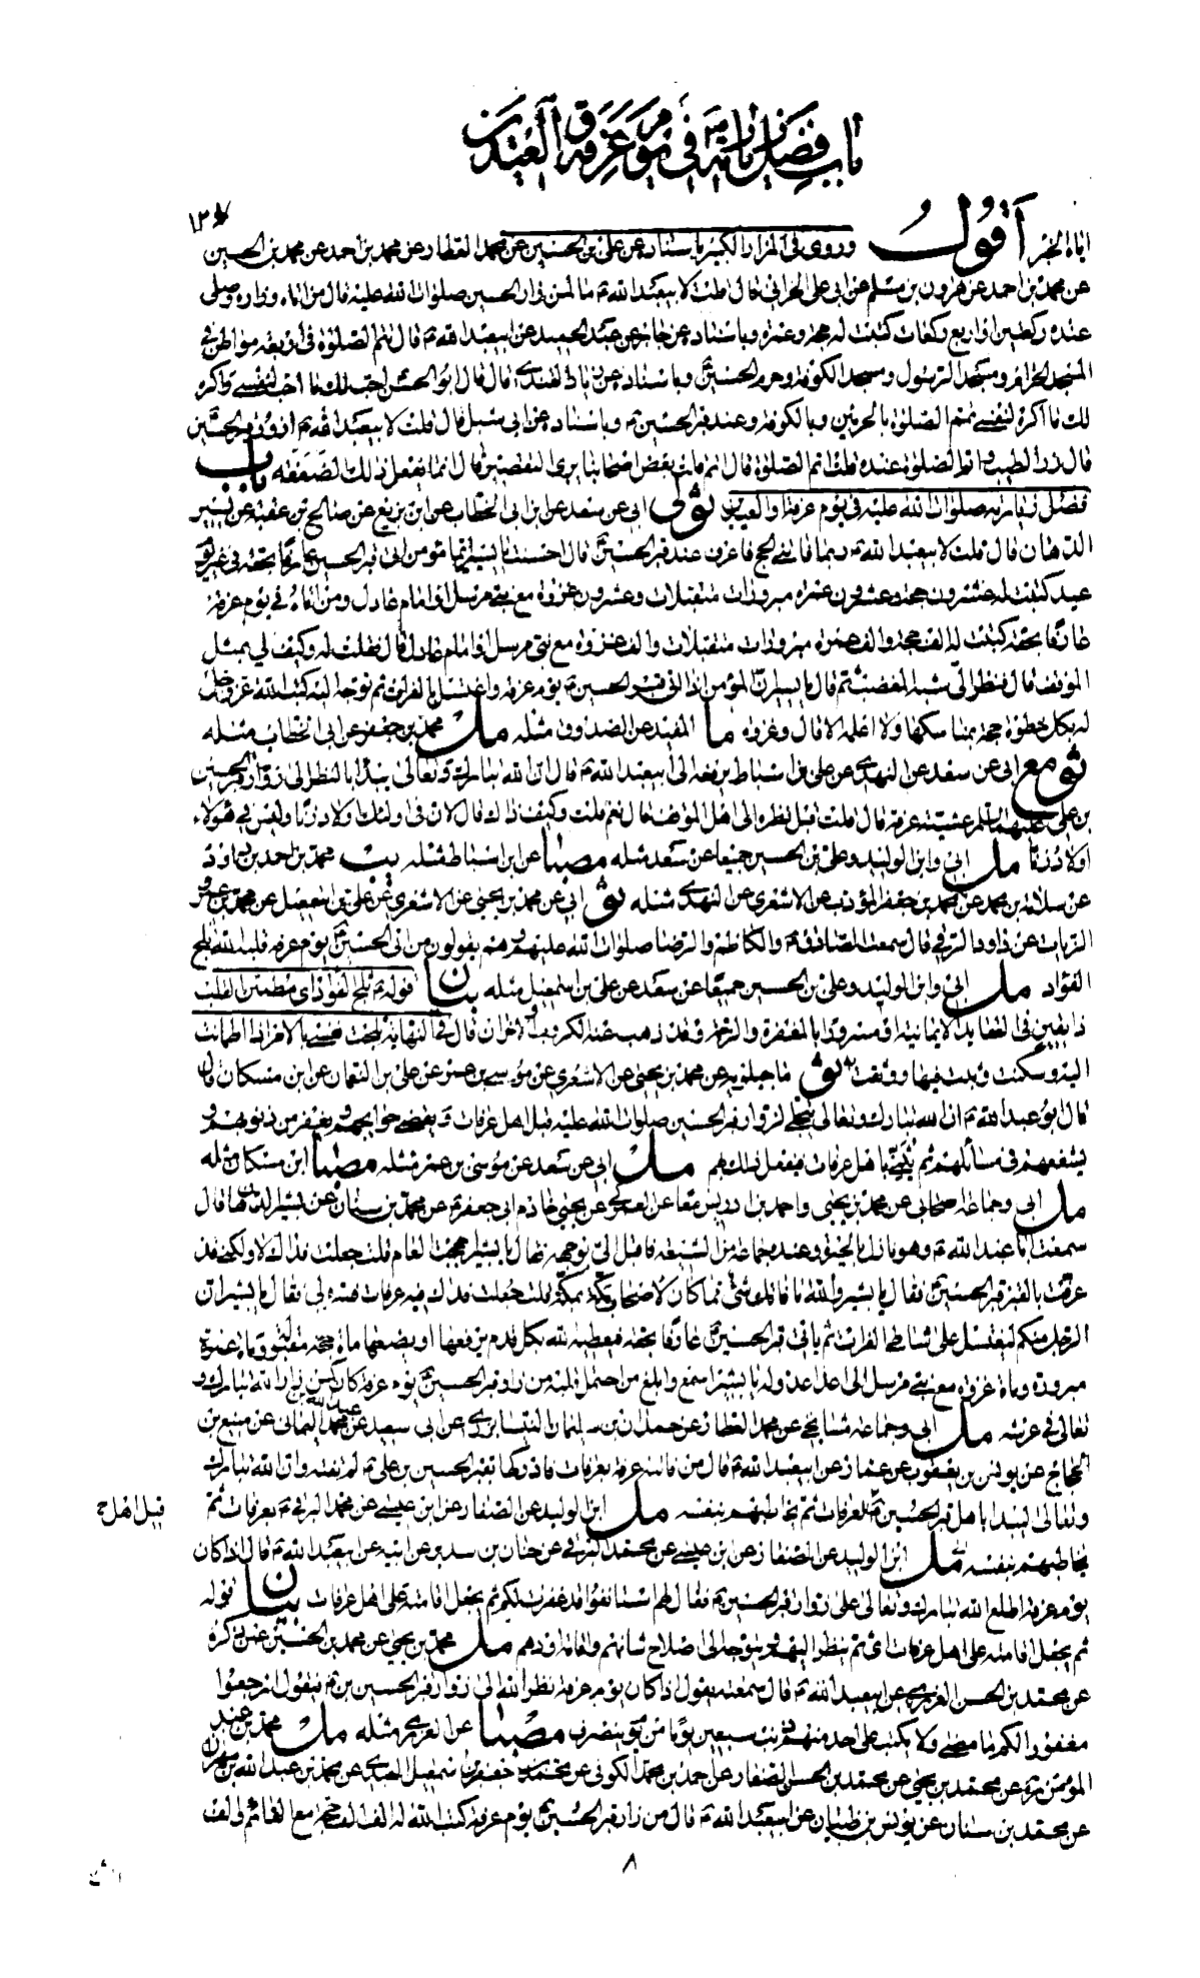 باب فضل زيارته في يوم عرفة والعيدين
١٣٧
اياه الخبر اقول وروى في المزار الكبير باسناده عن علي بن الحسين عن محمد العطار عن محمد بن احمد عن محمد بن الحسين
عن محمد بن احمد عن هرون بن مسلم عن ابي علي الحراني قال قلت لابيعبد الله ع ما لمن زار الحسين صلوات الله عليه قال من اتاه وزاره وصلى
عنده ركعتين او اربع ركعات كتبت له حجة وعمرة وباسناده عن عبد الحميد عن ابيعبد الله ع قال تتم الصلوة في اربعة مواطن في
المسجد الحرام ومسجد الرسول ومسجد الكوفة وحرم الحسين ع وباسناده عن زياد القندي قال قال ابو الحسن احب لك ما احب لنفسي واكره
لك ما اكره لنفسي تمم الصلوة بالحرمين وبالكوفة وعند قبر الحسين ع وباسناده عن ابي شبل قال قلت لابيعبد الله ع ازور قبر الحسين
قال زر الطيب واتم الصلوة عنده قلت اتم الصلوة قال اتم قلت بعض اصحابنا يرى التقصير قال انما يفعل ذلك الضعفة باب
فضل زيارته صلوات الله عليه في يوم عرفة والعيدين ابي عن سعد عن ابن ابي الخطاب عن ابن بزيع عن صالح بن عقبة عن بشير
الدهان قال قلت لابيعبد الله ع ربما فاتني الحج فاعرف عند قبر الحسين ع قال احسنت يا بشير ايما مؤمن اتى قبر الحسين عارفا بحقه في غير يوم
عيد كتبت له عشرون حجة وعشرون عمرة مبرورات متقبلات وعشرون غزوة مع نبي مرسل او امام عادل ومن اتاه في يوم عرفة
عارفا بحقه كتبت له الف حجة والف عمرة مبرورات متقبلات والف غزوة مع نبي مرسل او امام عادل قال فقلت له وكيف لي بمثل
الموقف قال فنظر الي شبه المغضب ثم قال يا بشير ان المؤمن اذا اتى قبر الحسين ع يوم عرفة واغتسل بالفرات ثم توجه اليه كتب الله عز وجل
له بكل خطوة حجة بمناسكها ولا اعلمه الا قال وغزوة ما المفيد عن الصدوق مثله مل محمد بن جعفر عن ابي الخطاب مثله
ثو مع ابي عن سعد عن النهدي عن علي بن اسباط يرفعه الى ابيعبد الله ع قال ان الله تبارك وتعالى يبدا بالنظر الى زوار قبر الحسين
بن علي عليهما السلام عشية عرفة قال قلت قبل نظره الى اهل الموقف قال نعم قلت وكيف ذاك قال لان في اولئك اولاد زنا وليس في هؤلاء
اولاد زنا مل ابي وابن الوليد وعلي بن الحسين جميعا عن سعد مثله مصبا عن ابن اسباط مثله يب محمد بن احمد بن داود
عن سلامة بن محمد عن محمد بن جعفر المؤدب عن الاشعري عن النهدي مثله ثو ابي عن محمد بن يحيى عن الاشعري عن علي بن اسمعيل عن محمد بن عمرو
الزيات عن داود الرقي قال سمعت الصادق ع والكاظم والرضا صلوات الله عليهم وهم يقولون من اتى قبر الحسين ع يوم عرفة قلبه الله ثلج
الفؤاد مل ابي وابن الوليد وعلي بن الحسين جميعا عن سعد عن علي بن اسمعيل مثله بيان قوله ع ثلج الفؤاد اي مطمئن القلب
ذا يقين في العقايد الايمانية او مسرورا بالمغفرة والرحمة وقد ذهب عنه الكروب والاحزان قال في النهاية ثلجت نفسي بالامر اذا اطمانت
اليه وسكنت وثبت فيها ووثقت به ثو ماجيلويه عن محمد بن يحيى عن الاشعري عن موسى بن عمر عن علي بن النعمان عن ابن مسكان قال
قال ابو عبد الله ع ان الله تبارك وتعالى يتجلى لزوار قبر الحسين صلوات الله عليه قبل اهل عرفات ويقضي حوائجهم ويغفر من ذنوبهم و
يشفعهم في مسائلهم ثم يثني باهل عرفات فيفعل ذلك بهم مل ابي عن سعد عن موسى بن عمر مثله مصبا ابن مسكان مثله
مل ابي وجماعة اصحابي عن محمد بن يحيى واحمد بن ادريس معا عن العمركي عن يحيى خادم ابي جعفر ع عن محمد بن سنان عن بشير الدهان قال
سمعت ابا عبد الله ع وهو نازل بالحيرة وعنده جماعة من الشيعة فاقبل الي بوجهه فقال يا بشير حججت العام قلت جعلت فداك لا ولكن قد
عرفت بالقبر قبر الحسين ع فقال يا بشير والله ما فاتك شيء مما كان لاصحاب مكة بمكة قلت جعلت فداك فيه عرفات فسره لي فقال يا بشير ان
الرجل منكم ليغتسل على شاطئ الفرات ثم ياتي قبر الحسين ع عارفا بحقه فيعطيه الله بكل قدم يرفعها او يضعها مائة حجة مقبولة ومائة عمرة
مبرورة ومائة غزوة مع نبي مرسل الى اعداء الله يا بشير اسمع وابلغ من احتمل قلبه من زار قبر الحسين ع يوم عرفة كان كمن زار الله تبارك و
تعالى في عرشه مل ابي وجماعة مشايخي عن محمد العطار عن حمدان بن سليمان النيسابوري عن ابي سعيد عن عبد الله بن محمد اليماني عن منيع بن
الحجاج عن يونس بن يعقوب عن عمار عن ابيعبد الله ع قال من فاتته عرفة بعرفات فادركها بقبر الحسين بن علي ع لم تفته وان الله تبارك
وتعالى ليبدا باهل قبر الحسين ع قبل اهل عرفات ثم يخاطبهم بنفسه مل ابن الوليد عن الصفار عن ابن عيسى عن محمد البرقي بعرفات ثم
قبل اهل خ
يخاطبهم بنفسه مل ابن الوليد عن الصفار عن ابن عيسى عن محمد البرقي عن حنان بن سدير عن ابيه عن ابيعبد الله ع قال اذا كان
يوم عرفة اطلع الله تبارك وتعالى على زوار قبر الحسين ع فقال لهم استانفوا قد غفرت لكم ثم يجعل اقامته على اهل عرفات بيان قوله
ثم يجعل اقامته على اهل عرفات اي ثم ينظر اليهم ويتوجه الى اصلاح شانهم واقامة اودهم مل محمد بن يحيى عن محمد بن الحسين عمن ذكره
عن محمد بن الحسن العرزمي عن ابيعبد الله ع قال سمعته يقول اذا كان يوم عرفة نظر الله الى زوار قبر الحسين بن ع فيقول ارجعوا
مغفورا لكم ما مضى ولا يكتب على احد منهم ذنب سبعين يوما من يوم ينصرف مصبا عن العرزمي مثله مل محمد بن عبد
المؤمن ره عن محمد بن يحيى عن محمد بن الحسن الصفار عن احمد بن محمد الكوفي عن محمد بن جعفر بن اسمعيل العبدي عن محمد بن عبد الله بن مهران
عن محمد بن سنان عن يونس بن ظبيان عن ابيعبد الله ع قال من زار قبر الحسين ع يوم عرفة كتب الله له الف الف حجة مع القائم والف
٨